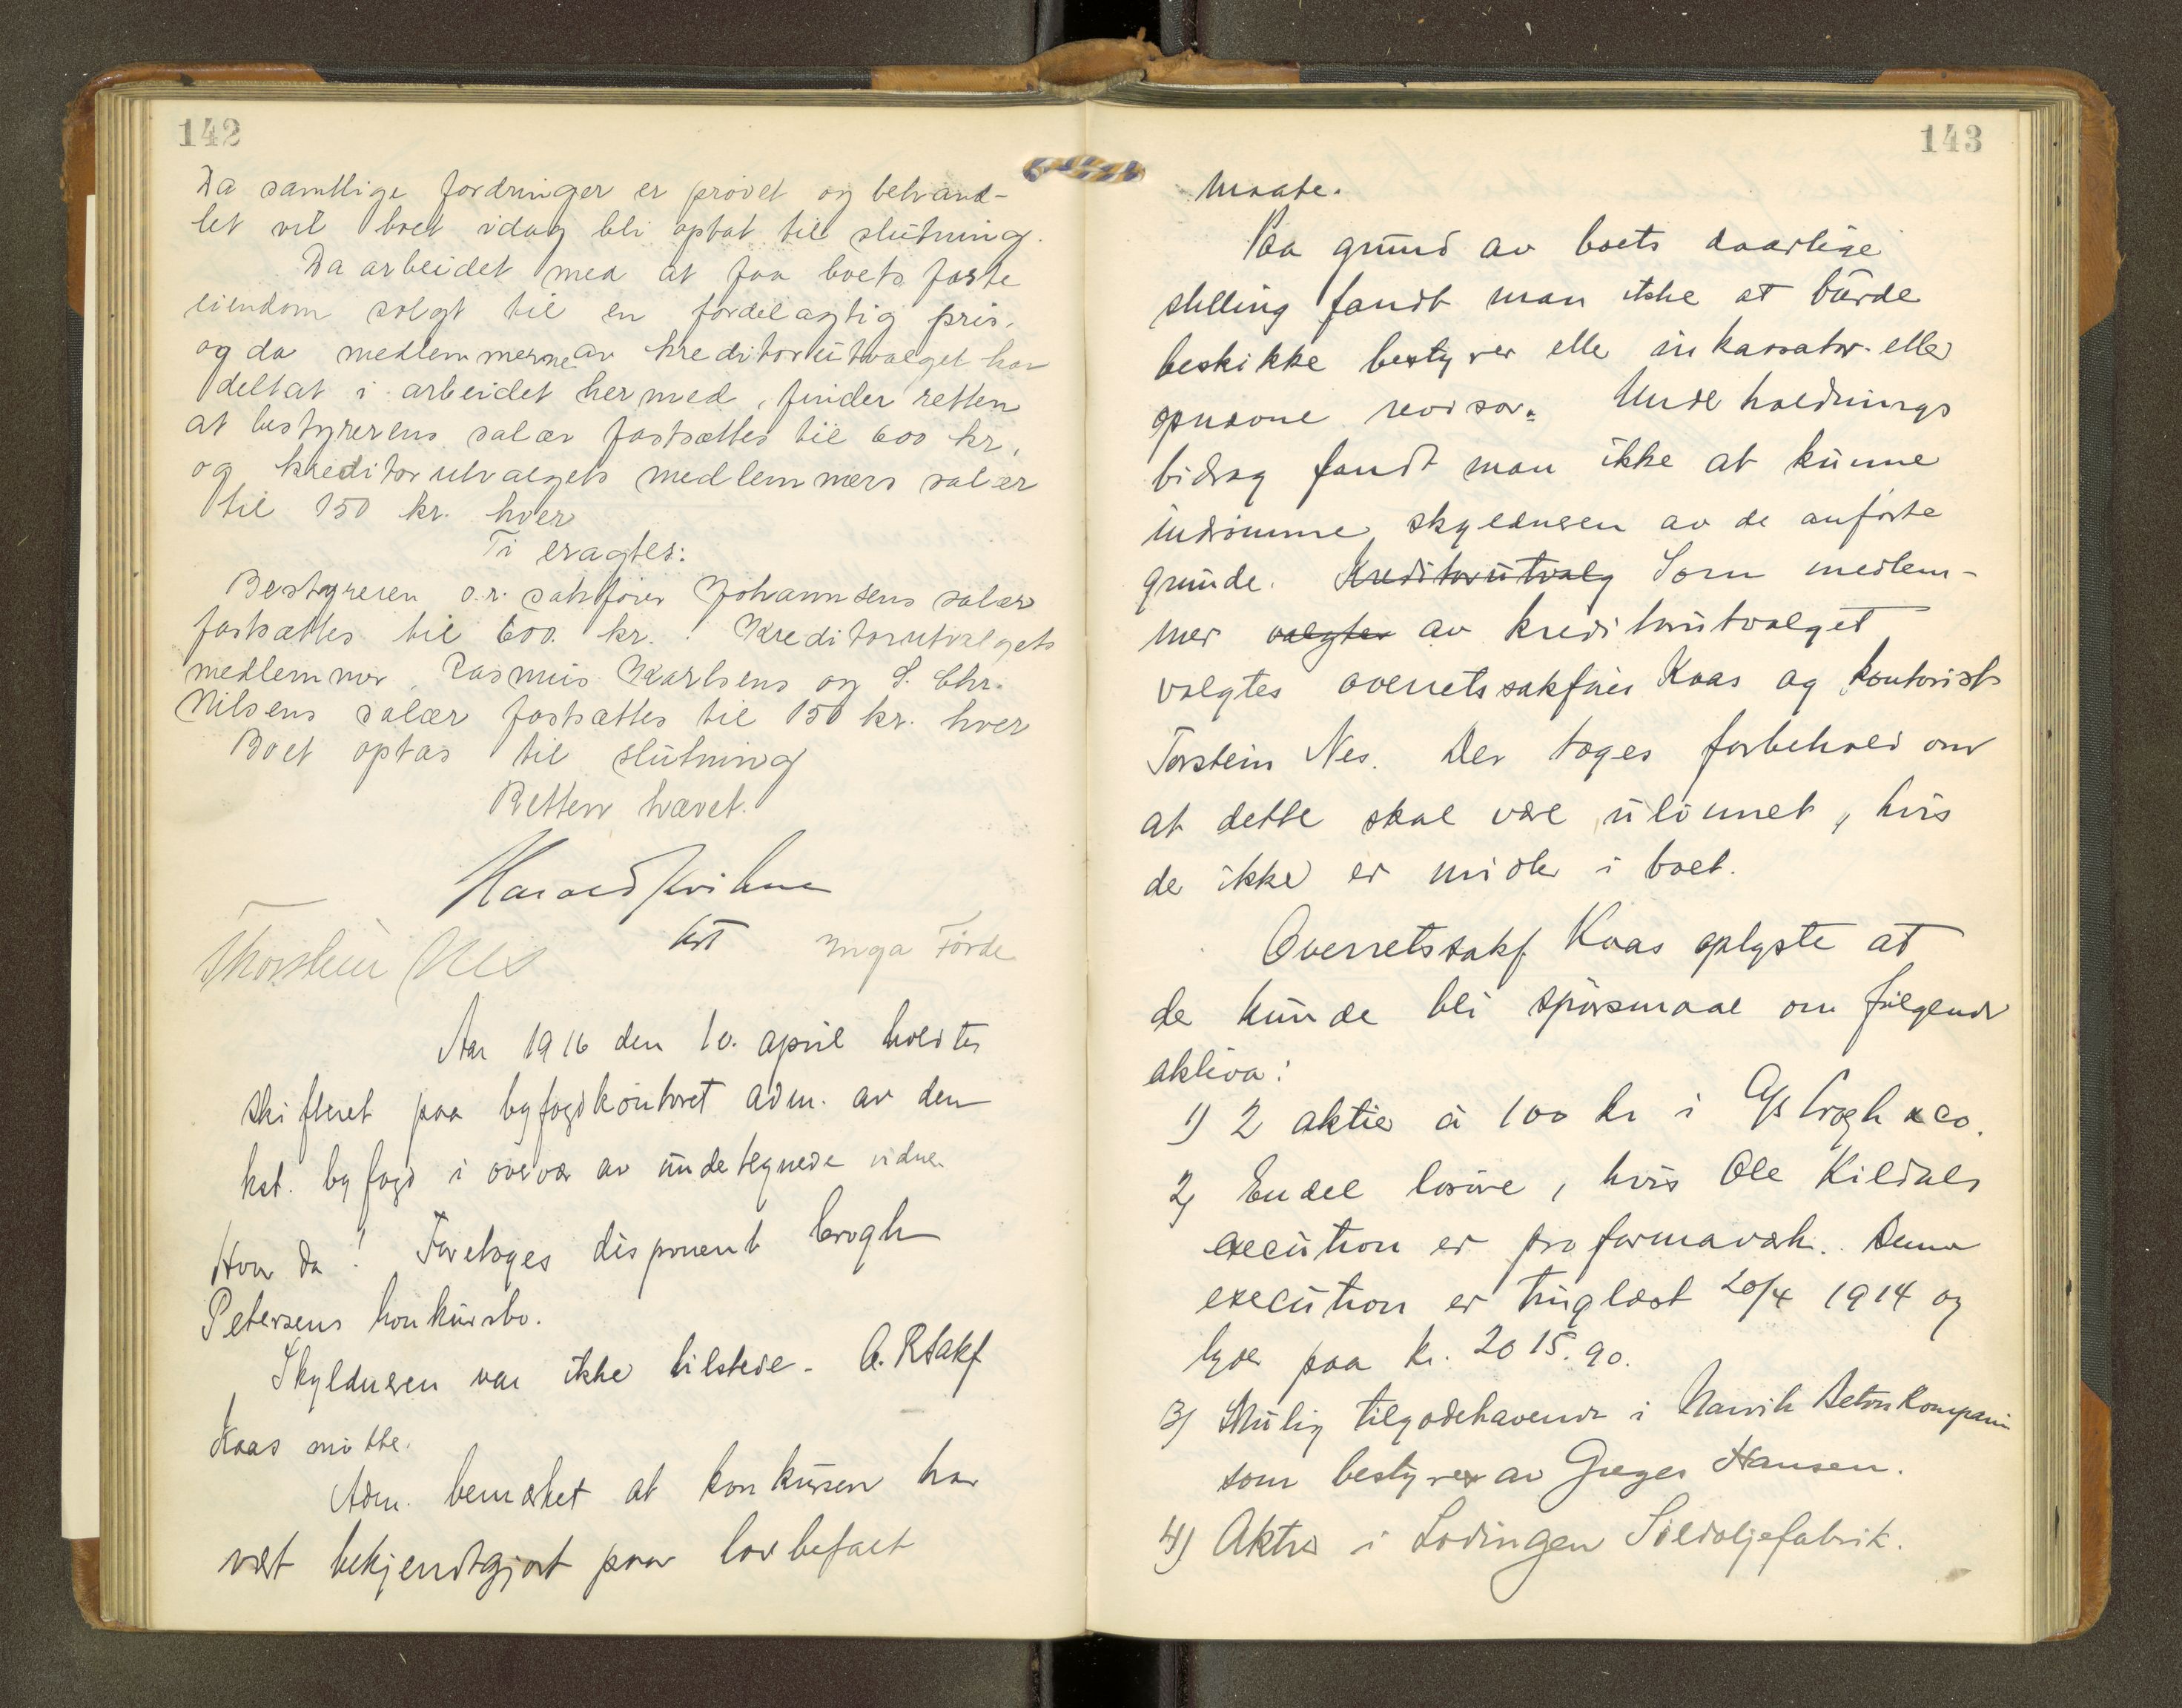 142
Da samtlige fordringer er prøvet og behand-
let vil boet idag bli optat til slutning.
Da arbeidet med at faa boets faste
eiendom solgt til en fordelagtig pris,
og da medlemmerne av kreditorutvalget har
deltat i arbeidet hermed, finder retten
at bestyrerens salær fastsættes til 600 kr.
og kreditorutvalgets medlemmers salær
til 150 kr. hver
Ti eragtes:
Bestyreren o.r. sakfører Johannsens salær
fastsættes til 600 kr. Kreditorutvalgets
medlemmer, Rasmus Karlsens og S. Chr.
Nilsens salær fastsættes til 150 kr. hver
Boet optas til slutning
Retten hævet.
Harald
kst
Thorstein Nes
Inga Förde
Aar 1916 den 10. april holdtes
skifteret paa byfogdkontoret adm. av den
kst. byfogd i overvær av undetegnede vidner.
Hvor da! Foretoges disponent Crogh
Petersens konkursbo.
Skyldneren var ikke tilstede. O.Rsakf
Kaas møtte.
Adm. bemærket at konkursen har
vært bekjendtgjort paa lovbefalt
143
maate.
Paa grund av boets daarlige
stilling fandt man ikke at burde
beskikke bestyrer eller inkassator eller
opnævne revisor. Underholdnings
bidrag fandt man ikke at kunne
indrömme skyldneren av de anförte
grunde. Kreditorutvalg Som medlem-
mer valgtes av kreditorutvalget
valgtes overretssakfører Kaas og kontorist
Torstein Nes. Der toges forbehold om
at dette skal være ulönnet, hvis
de ikke er midler i boet.
Overretssakf Kaas oplyste at
de kunde bli spörsmaal om følgende
aktiva:
1) 2 aktier à 100 kr i A/S Crogh & co.
2) Endel losöre, hvis Ole Kildals
execution er proformaværk. Denne
execution er tinglæst 20/4 1914 og
lyder paa kr. 2015.90.
3) Mulig tilgodehavende i Narvik Betonkompani
som bestyres av Greger Hansen.
4) Aktie i Lödingen Sildoljefabrik.